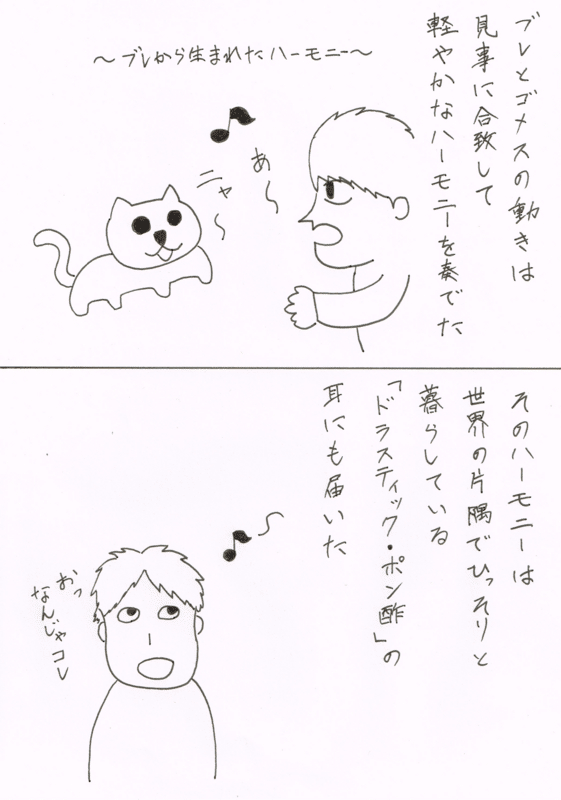 ブレとゴメスの動きは
見事に合致して
軽やかなハーモニーを奏でた
～ブレから生まれたハーモニー～
あ～
ニャ～
そのハーモニーは
世界の片隅でひっそりと
暮らしている
「ドラスティック・ポン酢」の
耳にも届いた
おっ
なんじゃコレ